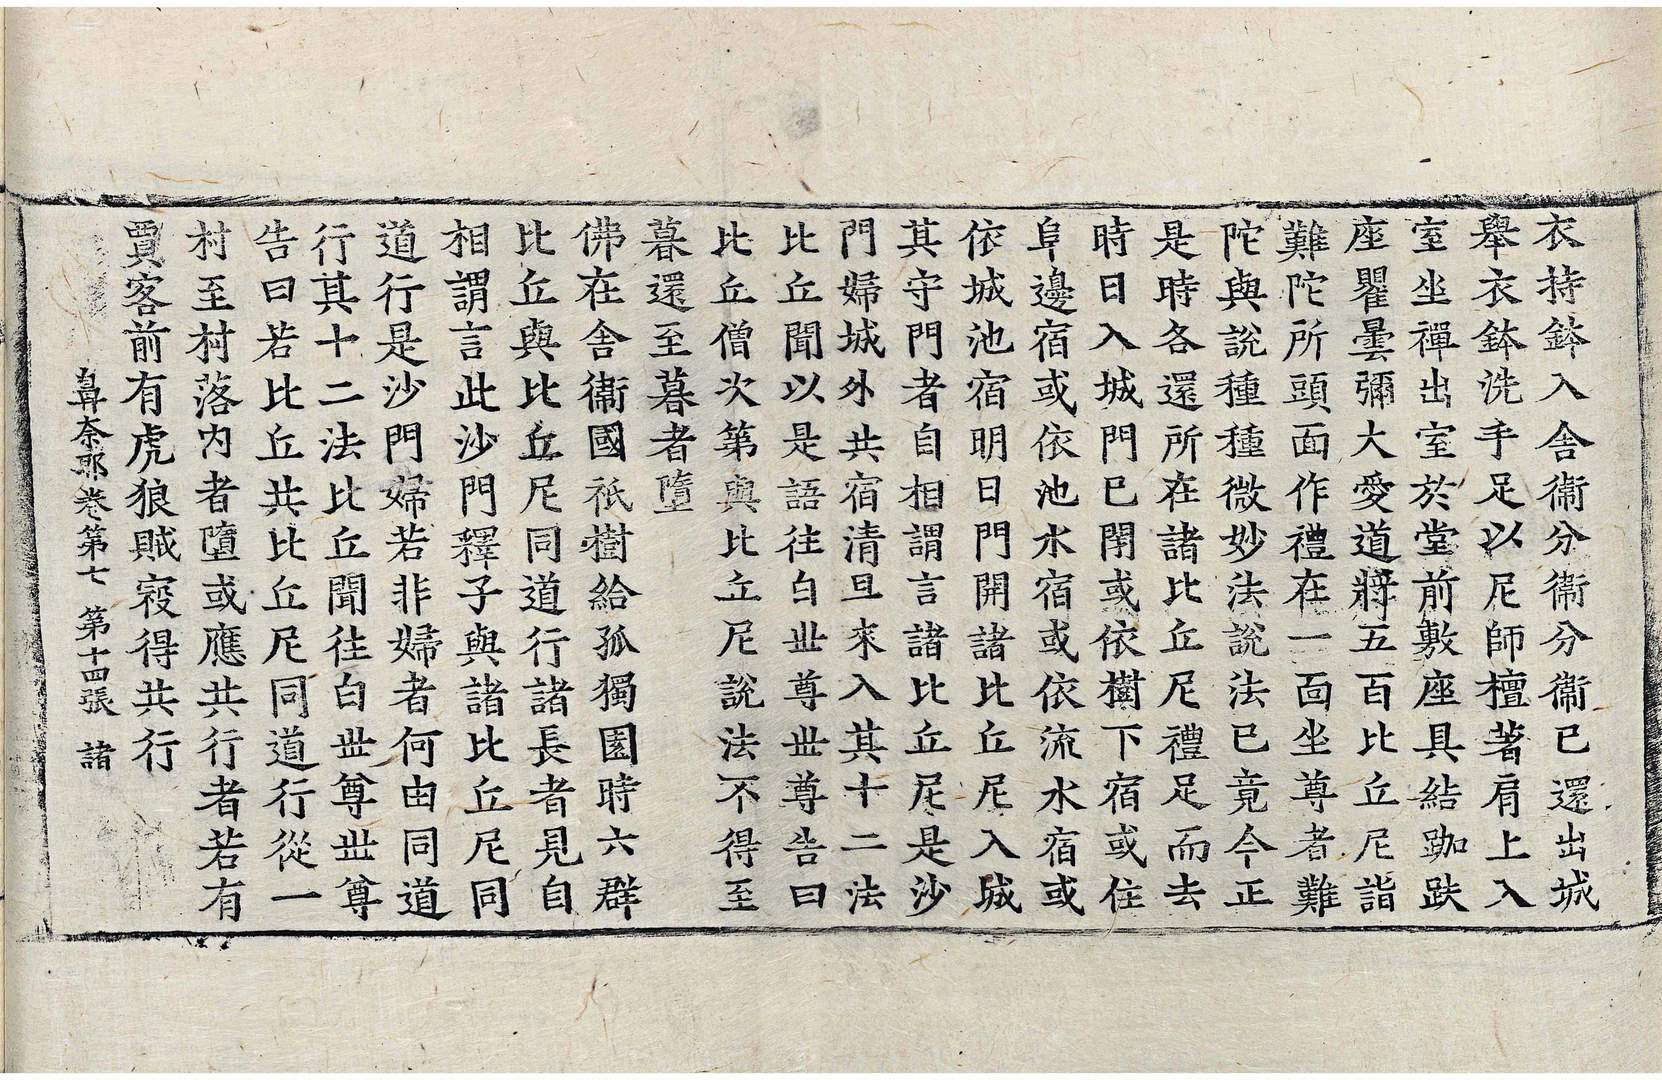 衣持鉢入舍衞分衞分衞已還出城
舉衣鉢洗手足以尼師檀著肩上入
室坐禪出室於堂前敷座具結跏趺
座瞿曇彌大愛道將五百比丘尼詣
難陀所頭面作禮在一面坐尊者難
陀與說種種微妙法說法已竟今正
是時各還所在諸比丘尼禮足而去
時日入城門已閇或依樹下宿或住
阜邊宿或依池水宿或依流水宿或
依城池宿明日門開諸比丘尼入城
其守門者自相謂言諸比丘尼是沙
門婦城外共宿清旦來入其十二法
比丘聞以是語往白世尊世尊告曰
比丘僧次第與比丘尼說法不得至
暮還至暮者墮
佛在舍衞國祇樹給孤獨園時六群
比丘與比丘尼同道行諸長者見自
相謂言此沙門釋子與諸比丘尼同
道行是沙門婦若非婦者何由同道
行其十二法比丘聞往白世尊世尊
告曰若比丘共比丘尼同道行從一
村至村落内者墮或應共行者若有
賈客前有虎狼賊𡨥得共行
鼻奈耶卷第七 第十四張 諸